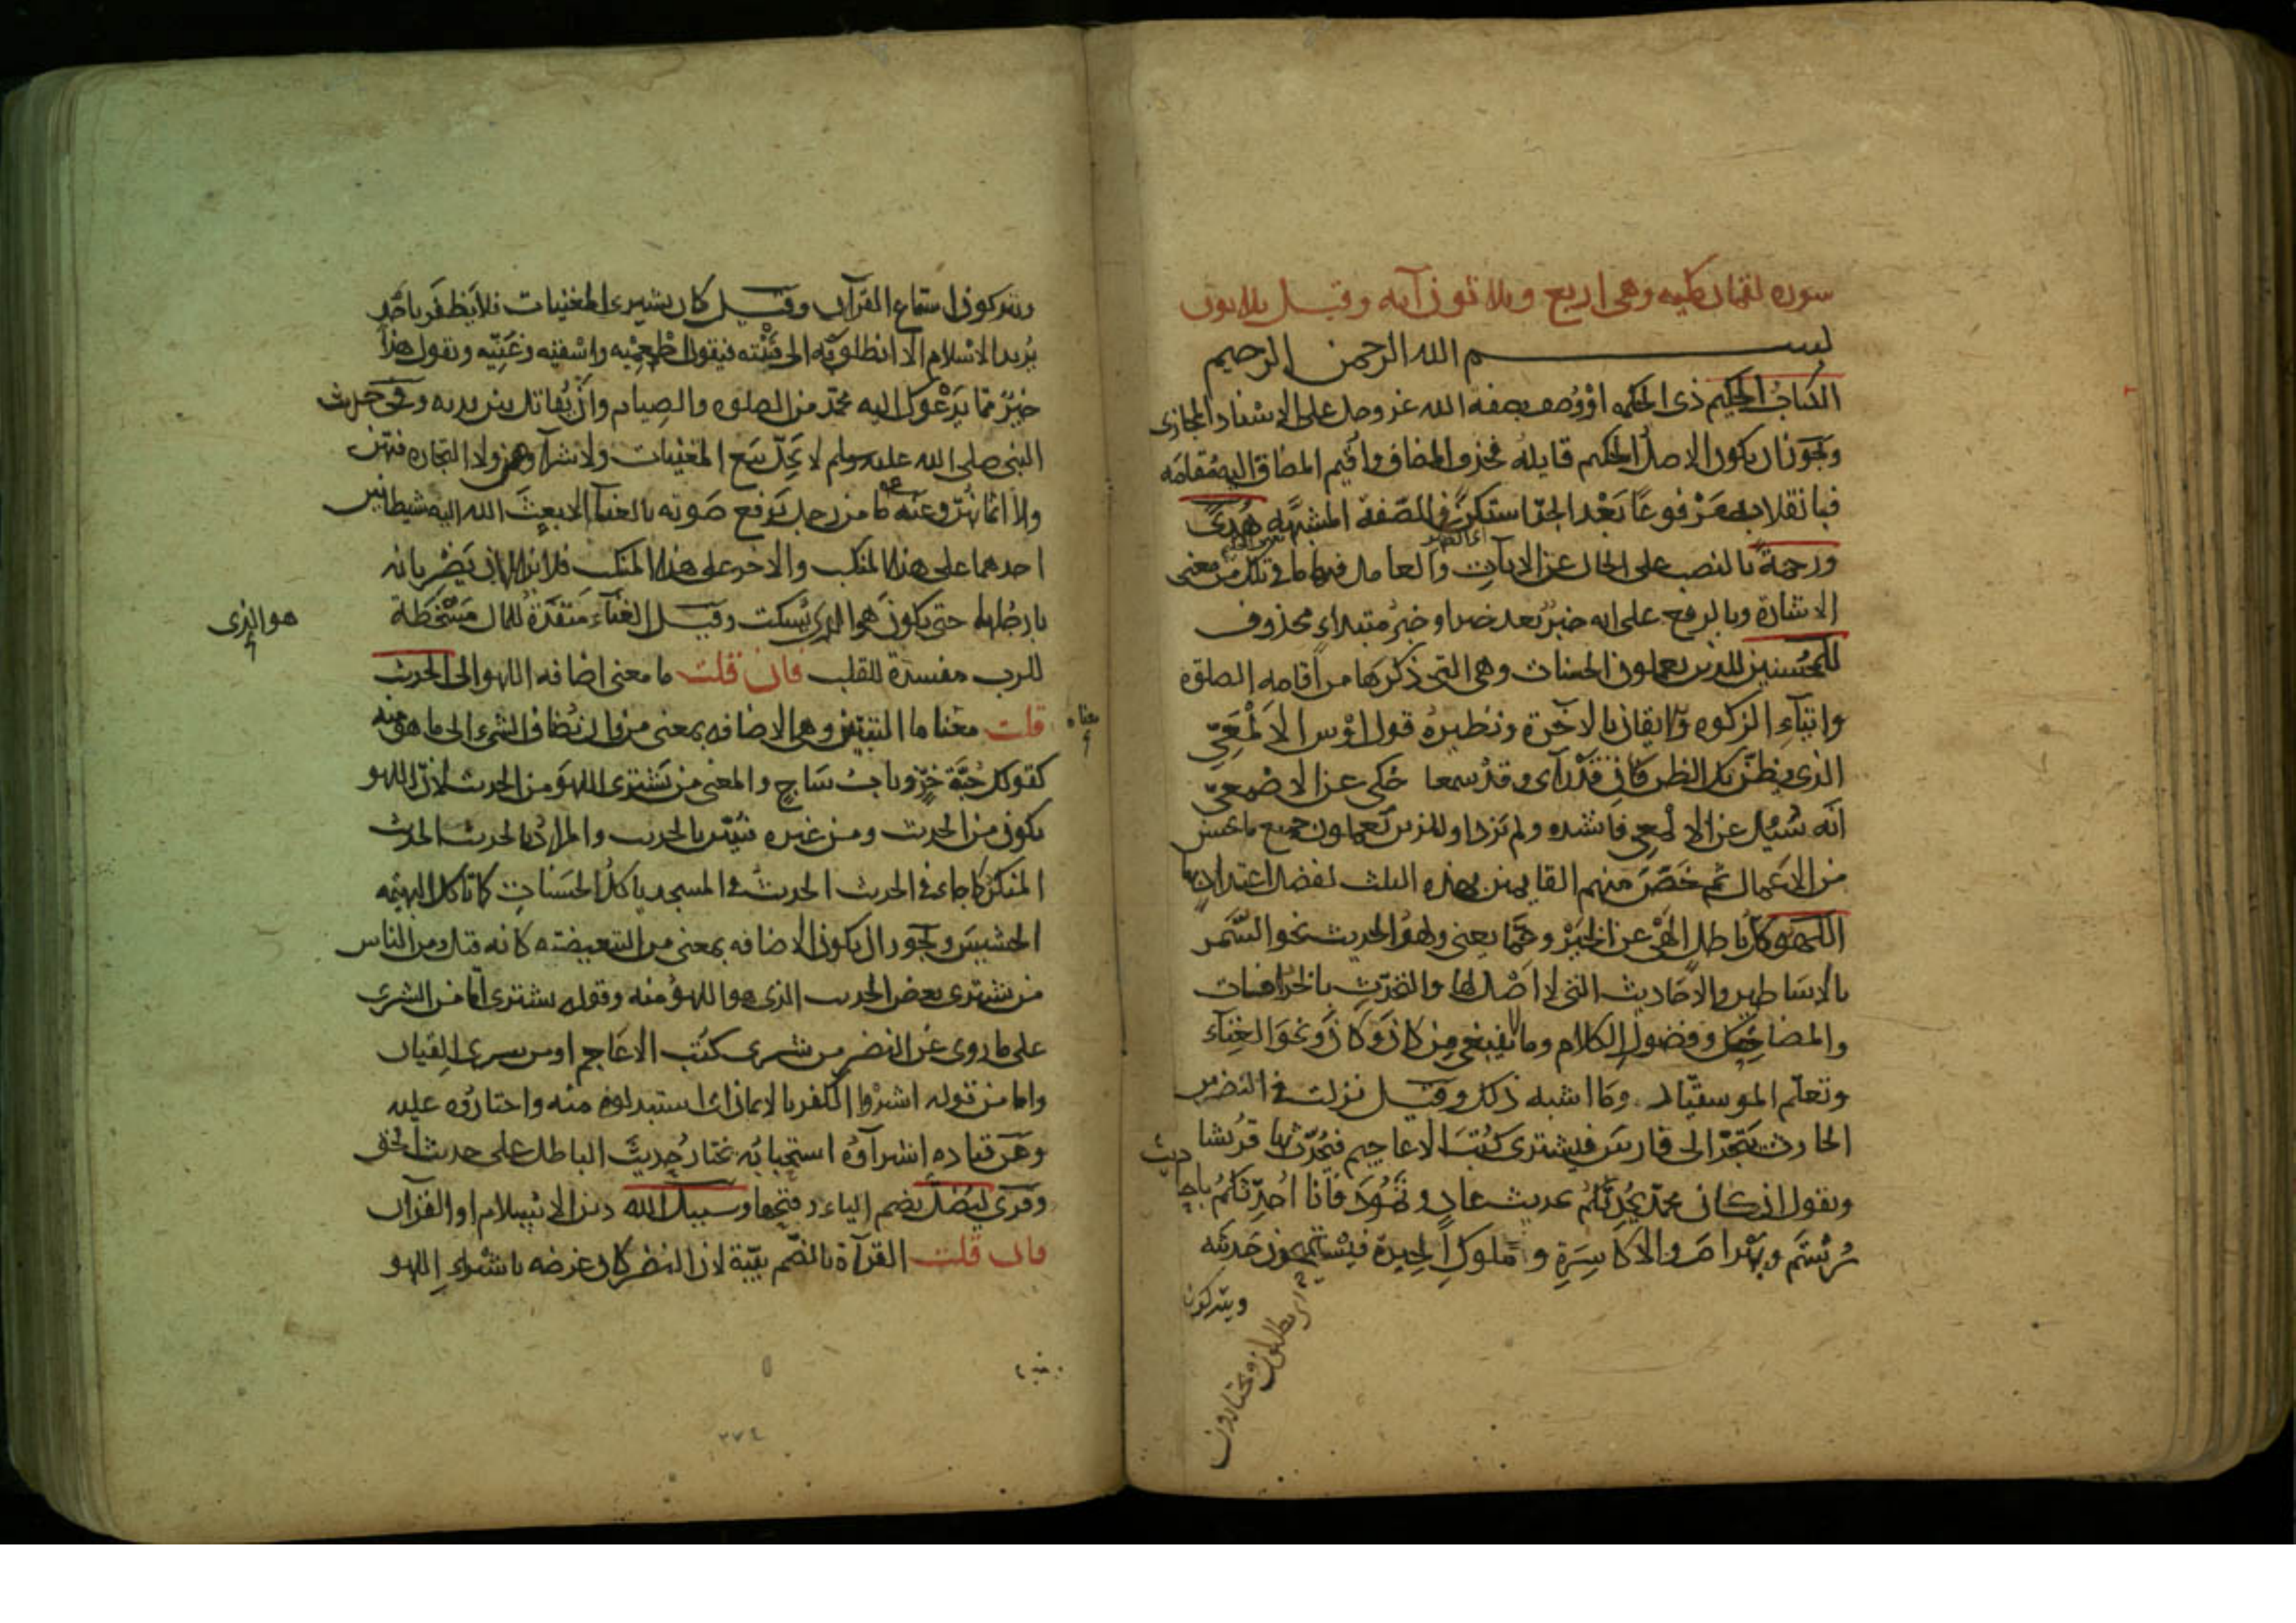 سورة لقمان مكيه وهى اربع وثلاثون آيه وقيل ثلاثون
بسم الله الرحمن الرحيم
الكتاب الحكيم ذى الحكمه او وُصف بصفة الله عز وجل على الاسناد المجازى
ويجوز ان يكون الاصل الحكيم قايله فحذف المضاف واُقيم المضاف اليه مُقامَه
فبانقلابه مَرْفوعًا بَعْد الجرّ استكنّ فى الصّفة المشبَّهه هُدىً
ورحمةً بالنصب على الحال عن الآيات والعامل فيها ما فى تلك من معنى
الاشارة وبالرفع على انه خبرٌ بعد خبر او خبرُ مبتداءٍ محذوف
للمحْسنين للذين يعملون الحسنات وهى التى ذكرَها من اقامه الصلوة
وايتآءِ الزكوه والايقان بالآخرة ونظيرهُ قول اوْس الاَلْمَعِىّ
الذى يظنّ بك الظن كان قدْ رآى وقدْ سمعا حُكى عن الاصْمعىّ
انّه سُئِل عن الالمعى فانشده ولم يَزد او للذين يَعملون جميع ما يحسن
من الاعمال ثم خَصّ منهم القايمين بهذه الثلث لفضل اعتدادٍ بها
اللهو كلّ باطل الْهَى عن الخيْر وعمّا يعنى ولَهْوُ الحديث نحو السَّمَر
بالاسَاطير والاحَاديث التى لا اصْل لها والتحَدّث بالخرافات
والمضاحِك وفضول الكلام وما لا ينبغى مِن كانَ وَكانَ وَنحو الغِنآء
وتعلّم الموسقيّاد وما اشبه ذلك وقيل نزلت فى النضر بن
الحارث يَتّجرُ الى فارس فيشترى كتُبَ الاعاجيم فيُحدّث بها قرُيشا
ويقول ان كان محمّد يُحدّثكم بحديث عادٍ وثمُودَ فأنا اُحدّثكُمْ باحاديث
رُسْتَمَ وبَهْرام والاكاسِرَةِ وملوكِ الحِيرة فيسْتملحون حَديثه
اى يطلبون ويختارون
ويتركون
ويتركون استماع القرآن وقيل كان يشترى المغنيات فلا يَظفَر باحَدٍ
يُريد الاسْلام الّا انطلق به الى قَيْنته فيقول اطْعِمِيْه واسْقيْه وغَنِّيه ويقول هذا
خيرٌ ممّا يَدْعوك اليه محمّد من الصلوه والصِيام وانْ تُقاتل بين يديه وفى حديث
النبى صلى الله عليه وسلم لا يَحِلّ بيع المغنيات ولا شرآوهن ولا التجاره فيهن
ولا اثمانهُنّ وعَنه ما من رجل يَرفع صَوته بالغنآ الا بعث الله اليه شيطانين
احدهما على هذا المنكب والاخر على هذا المنكب فلا يزالان يَضْربانه
بارجُلهما حتى يكونَ هو الذى يَسكت وقيل الغنآء مَنفَدَةٌ للمال مَسْخطَة
هو الذى
للرب مفسدة للقلب فان قلت ما معنى اضافه اللهو الى الحديث
قلت معناها التبيّين وهى الاضافه بمعنى من وان تُضاف الشىء الى ما هو منه
معناه
كقولك جُبّة خزّ وبابُ سَاجٍ والمعنى من يَشترى اللهوَ من الحديث لانّ اللهو
يكون من الحديث ومن غيره فبُيّن بالحديث والمرادُ بالحديث الحديث
المنكرُ كما جاء فى الحديث الحديثُ فى المسجد ياكلُ الحسَنات كما تاكل البهيمه
الحشيش ويجوز ان يكون الاضافه بمعنى من التبعيضيه كانه قيل ومن الناس
من يشترى بعض الحديث الذى هو اللهوُ منه وقوله يشترى امّا من الشرى
على ما روى عن النضر من شرى كتب الاعَاجم او من شرى القيان
واما من قوله اشتروا الكفر بالايمان اى استبدلوه منه واختاروُه عليه
وعَن قتاده اشترآوُه استحبابُه يَختار حديثَ الباطل على حديث الحق
وقرى ليُضلَّ بضم الياء وفتحها وسبيل الله دين الاسلام او القرآن
فان قلت القرآءة بالضّم بيّنة لان النضر كان غرضه باشتراءِ اللهو
٣٧٤